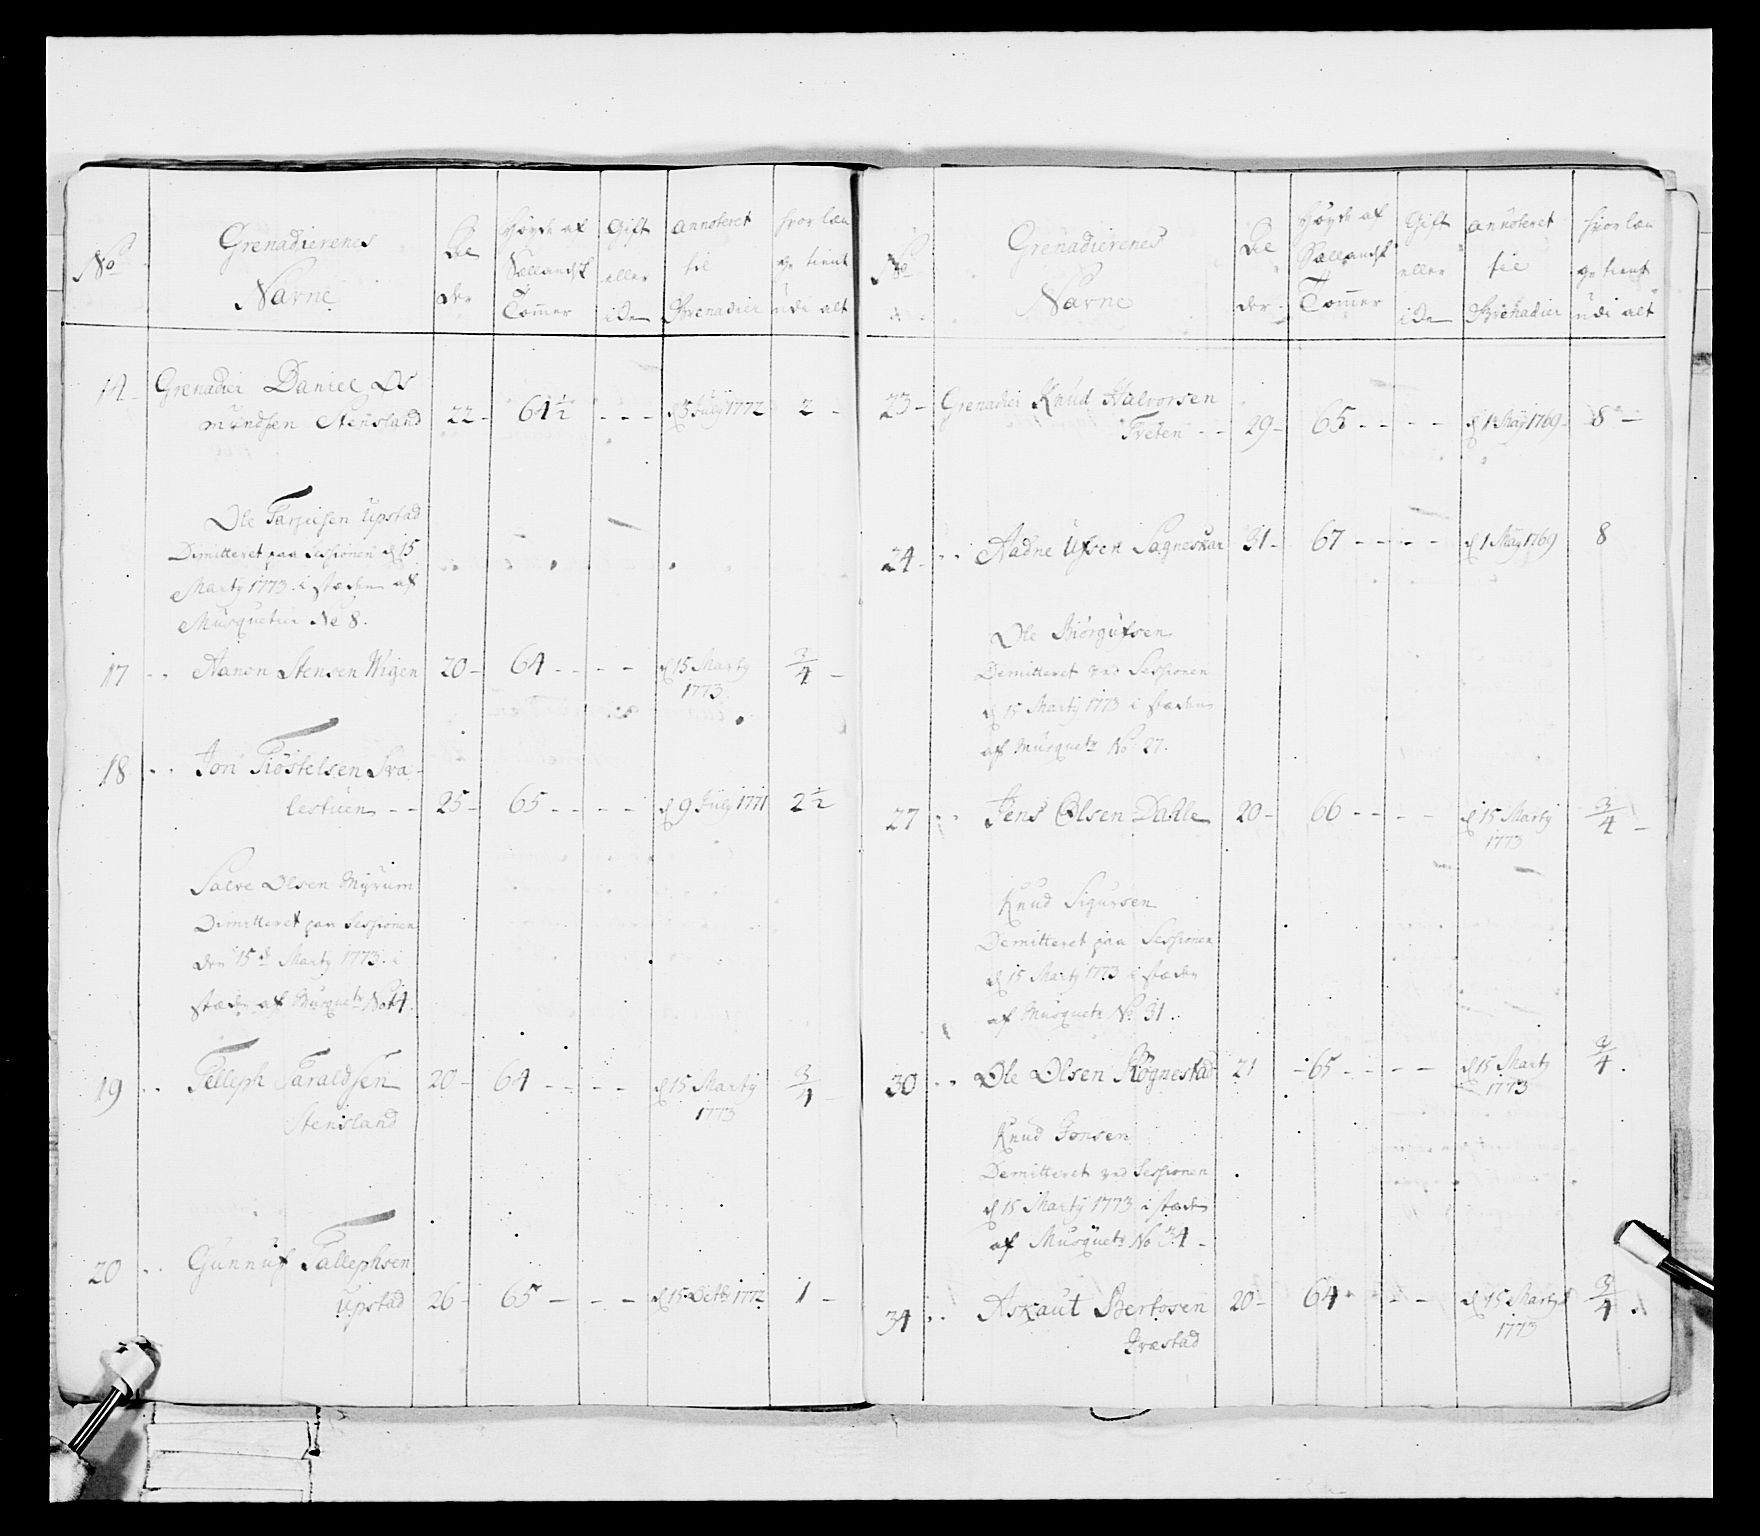 No
Grenadierenes
Navne
Al
der
Høyde af
Sællandsk
Tommer
Gift
eller
iche
annoteret
til
Grenadier
hvor læn
ge tient
udi alt
14 Grenadier Daniel Os
mundsen Stensland 22 - 64 1/2 - - - d 3 July 1772 2 -
Ole Tarjeisen Upstad
Dimitteret paa Sessionen d 15
Marty 1773 i stæden af
Musquetier No 8.
17 - - Aanon Stensen Wigen 20 - 64 - - - - d 15 Marty 3/4 -
1773.
18 - - Jon Tiøstelsen Sva-
lestuen - - 25 - 65 - - - - d 9 July 1771 2 1/2
Salve Olsen Myrum
Dimitteret paa Sessionen
den 15de Marty 1773 i
stæden af Musquetr No 14.
19 - - Telleph Taraldsen 20 - 64 - - - - d 15 Marty 3/4 -
Stensland 1773
20 - - Gunnuf Tallephsen
Upstad 26 - 65 - - - d 15 Octb 1772 1 -
No
Grenadierenes
Navne
Al
der
Høyde af
Sællandsk
Tommer
Gift
eller
iche
annoteret
til
Grenadier
hvor læn
ge tient
udi alt
23 - Grenadier Knud Halvorsen
Treten - - 29 - 65 - - - - d 1 May 1769 - 8 -
24 - - Aadne Ufsen Sagneskar 31 - 67 - - - - d 1 May 1769 8
Ole Biørgufsen
Demitteret ved Sessionen
d 15 Marty 1773 i stæden
af Musquetr No 27.
27 - - Jens Olsen Dahle 20 - 66 - - - - d 15 Marty 3/4 -
1773
Knud Sigursen
Demitteret paa Sessionen
d 15 Marty 1773 i stæden
af Musquetr No 31.
30 - - Ole Olsen Røgnestad 21 - 65 - - - - d 15 Marty 3/4.
1773
Knud Jonsen
Demitteret ved Sessionen
d 15 Marty 1773 i stæden
af Musquetr No 34 -
34 - - Askaut Bertosen 20 - 64 - - - d 15 Marty 3/4.
Jvestad 1773